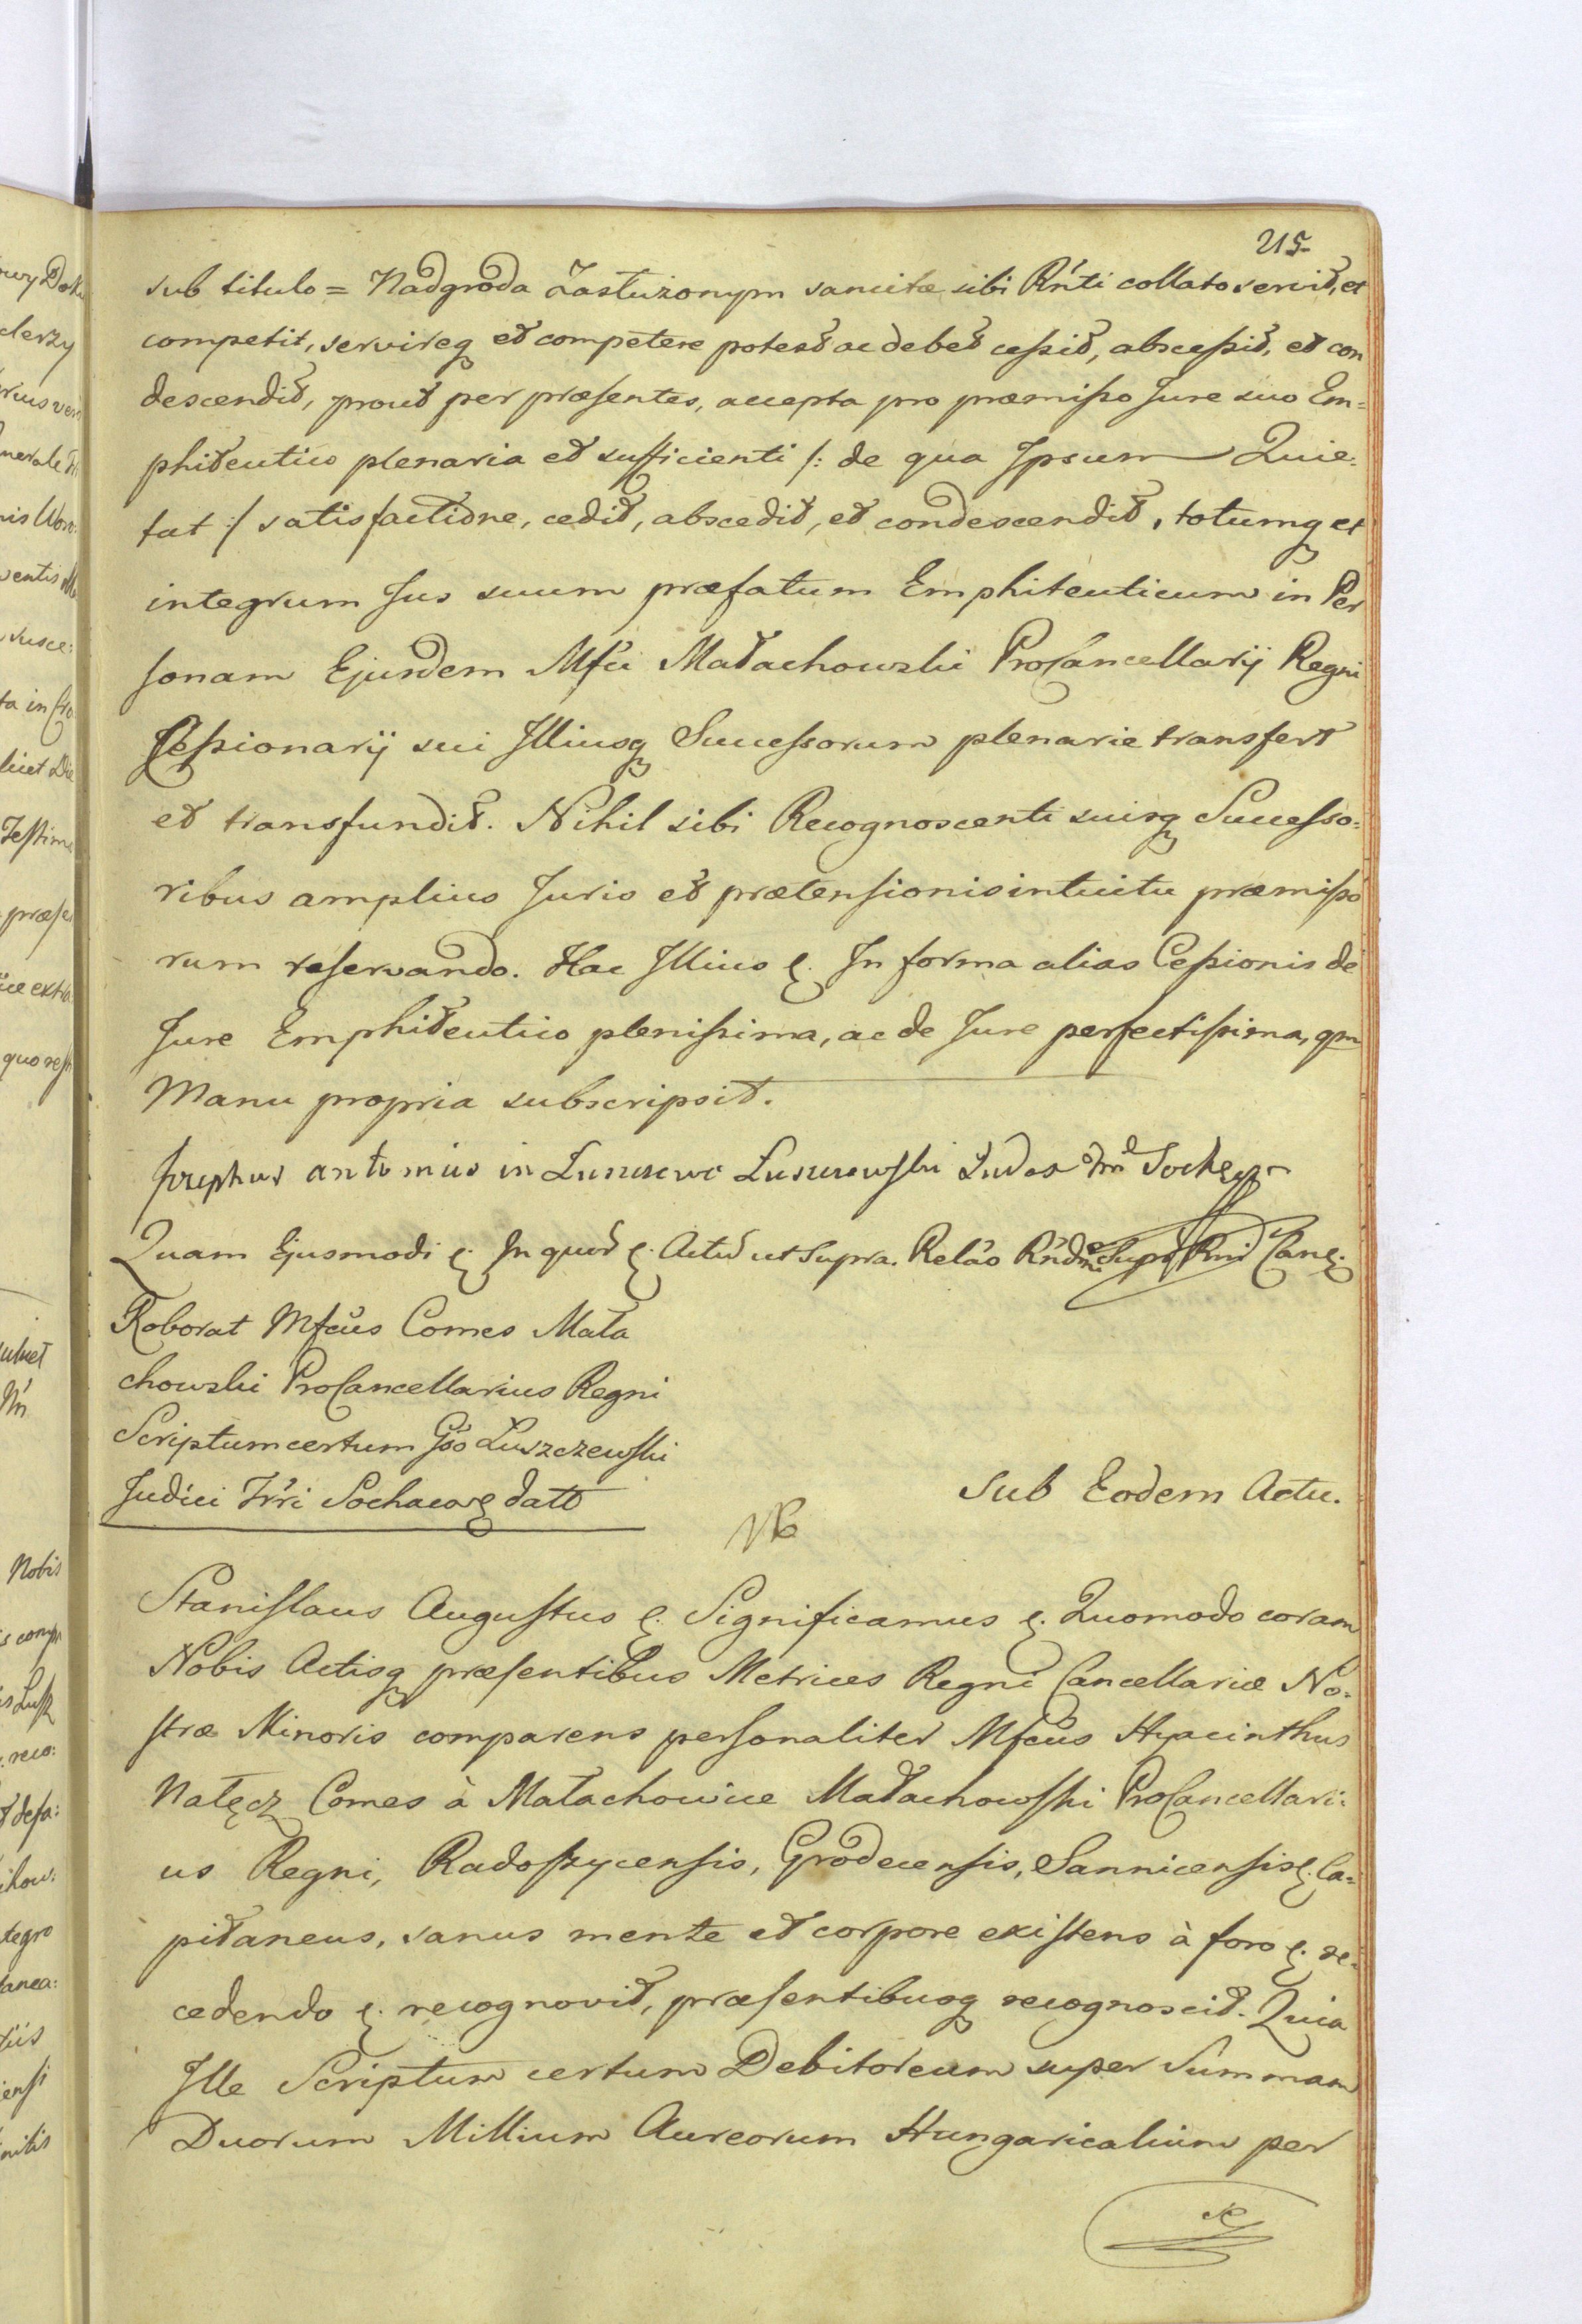 215
sub titulo = Nadgroda Zasłużonym sancitæ sibi Rńti collato servit, et
competit, servireq et competere potest ac debet cessit, abscessit, et con
descendit, prout per præsentes, accepta pro præmisso Jure suo Em=
phiteutico plenaria et sufficienti /: de qua Ipsum Quie.
tat :/ satisfactione, cedit, abscedit, et condescendit, totumq et
integrum Jus suum præfatum Emphiteuticum in Per
sonam Ejusdem Mfci Małachowski ProCancellarij Regni
Cessionarij sui Illiusq Successorum plenarie transfert
et transfundit. Nihil sibi Recognoscenti suisq Successo=
ribus amplius Juris et prætensionis intuitu præmisso
rum reservando. Hac Illius &. In forma alias Cessionis de
Jure Emphiteutico plenissima, ac de Jure perfectissima, qm
Manu propria subscripsit.
Josephus antonius in Luszczewo Luszczewski Judex
Quam Ejusmodi &. In quor &. Actū ut Supra. Relāo Canc.
Roborat Mfcus Comes Mała
chowski ProCancellarius Regni
Scriptum certum Gso Luszczewski
Judici Trri Sochacov datt
Sub Eodem Actu.
Stanislaus Augustus &. Significamus &. Quomodo coram
Nobis Actisq præsentibus Metrices Regni Cancellariæ No.
stræ Minoris comparens personaliter Mfcus Hyacinthus
Nałęcz Comes à Małachowice Małachowski ProCancellari=
us Regni, Radoszycensis, Grodecensis, Sannicensis &. Ca=
pitaneus, sanus mente et corpore existens à foro &. re=
cedendo &. recognovit, præsentibusq recognoscit. Quia
Ille Scriptum certum Debitoreum super Summam
Duorum Millium Aureorum Hungaricalium per